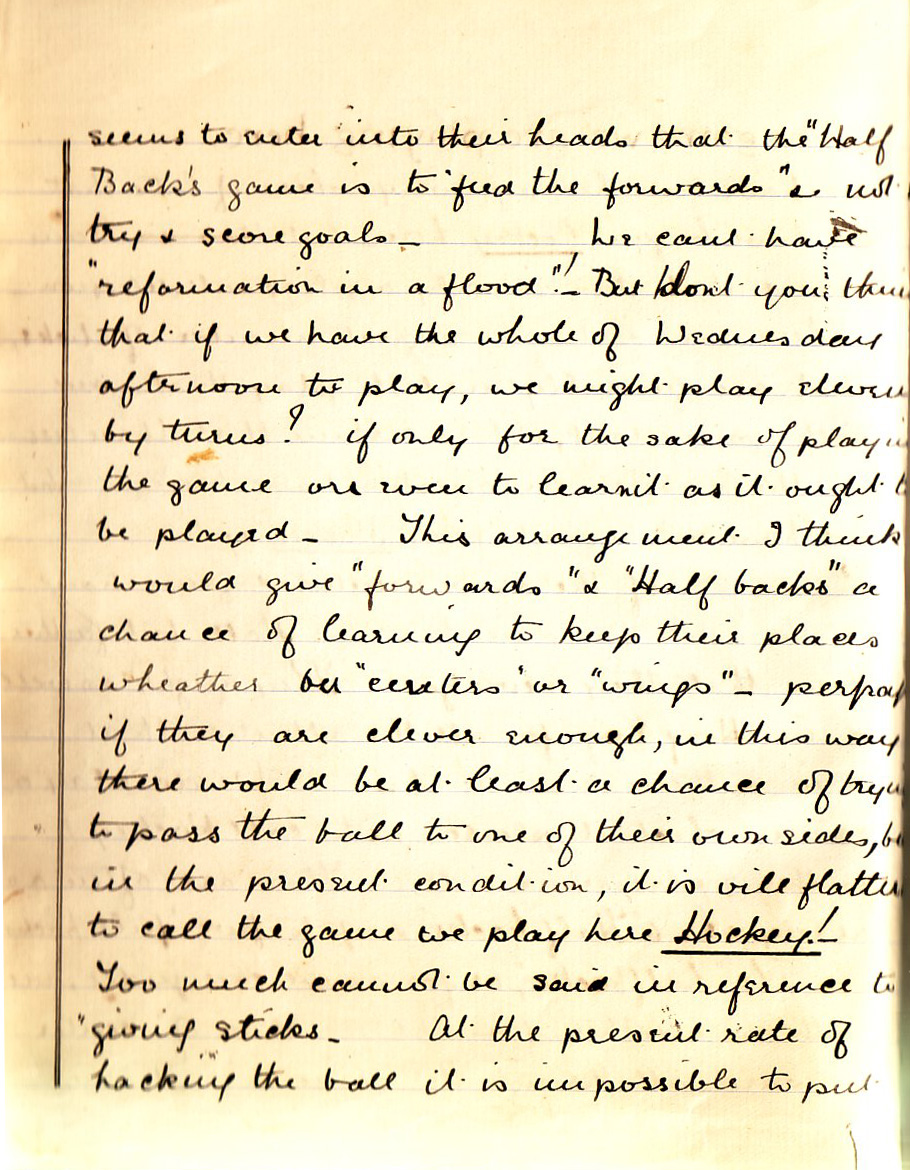 seems to enter into their heads that the "Half
Back's game is to "feed the forwards" & not
try & score goals_ We cant have
"reformation in a flood"!_ But dont you think
that if we have the whole of Wednesday
afternoon to play, we might play eleven
by turns? if only for the sake of playin
the game or even to learn it as it ought t
be played_ This arrangement I think
would give "forwards" & "Half backs" a
chance of learning to keep their places
wheather be "centers" or "wings"_ perhap
if they are clever enough, in this way
there would be at least a chance of tryin
to pass the ball to one of their own sides, bu
in the present condition, it is vill flatter
to call the game we play here Hockey!_
Too much cannot be said in reference to
"giving sticks_ At the present rate of
hacking" the ball it is impossible to put